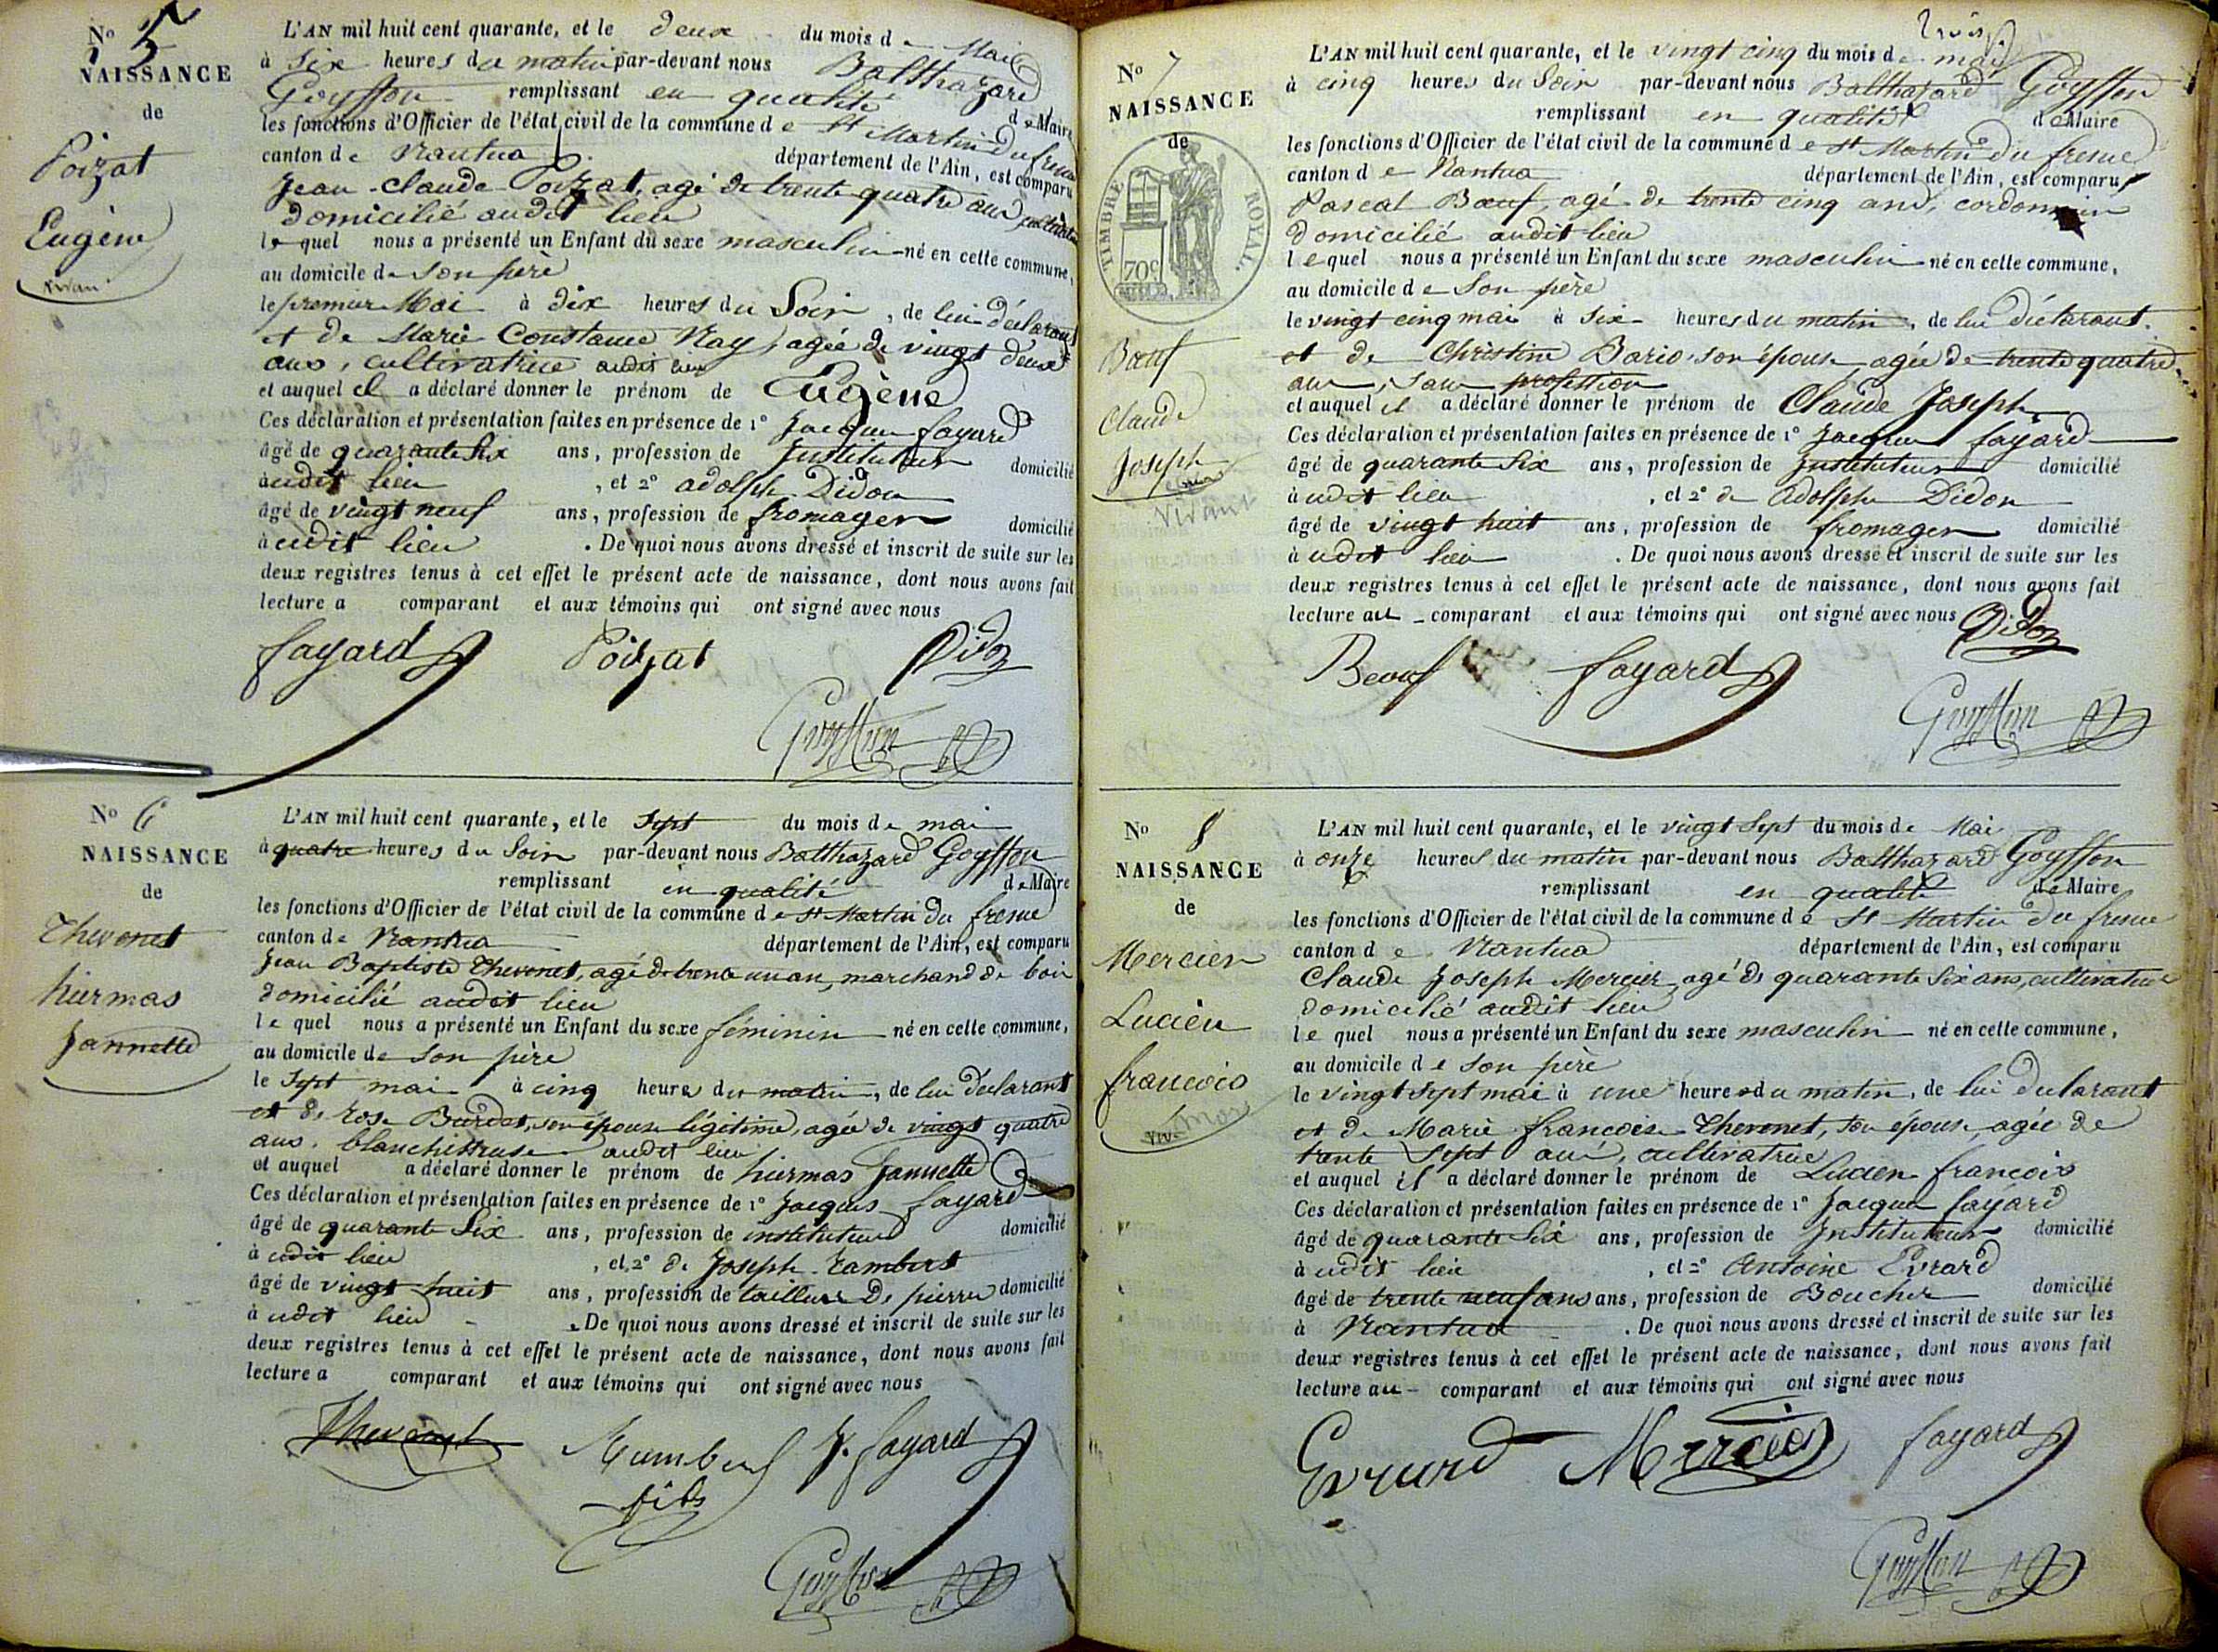 N° 5
NAISSANCE
de
Poizat
Eugène
vivan
L'AN mil huit cent quarante, et le deux du mois de Mai
à six heures du matin par-devant nous Balthazard
Goyffon remplissant en qualité de Maire
les fonctions d'Officier de l'état civil de la commune de St Martin du fresne
canton de Nantua département de l'Ain, est comparu
Jean-claude Poizat, agé de trente quatre ans cultivateur
domicilié audit lieu
lequel nous a présenté un Enfant du sexe masculin né en cette commune,
au domicile de son père
le premier Mai à dix heures du Soir, de lui déclarant
et de Marie Constance Nay, agée de vingt deux
ans, cultivatrice audit lieu
et auquel il a déclaré donner le prénom de Eugène
Ces déclaration et présentation faites en présence de 1° Jacques fayard
âgé de quarante Six ans, profession de Instituteur domicilié
audit lieu, et 2° adolph Didon
âgé de vingt neuf ans, profession de fromager domicilié
à udit lieu. De quoi nous avons dressé et inscrit de suite sur les
deux registres tenus à cet effet le présent acte de naissance, dont nous avons fait
lecture a comparant et aux témoins qui ont signé avec nous
fayard Poizat Didon
Goyffon
N° 6
NAISSANCE
de
Thevenet
hiermas
Jannette
L'AN mil huit cent quarante, et le Sept du mois de mai
à quatre heures du Soir par-devant nous Balthazard Goyffon
remplissant en qualité de Maire
les fonctions d'Officier de l'état civil de la commune de St Martin du fresne
canton de Nantua département de l'Ain, est comparu
Jean Baptiste Thevenet, agé de trente un an, marchand de bois
domicilié audit lieu
le quel nous a présenté un Enfant du sexe féminin né en cette commune,
au domicile de son père
le Sept mai à cinq heures du matin, de lui déclarant
et de Rose Burdet, son épouse légitime, agée de vingt quatre
ans, blanchisseuse audit lieu
et auquel a déclaré donner le prénom de hiermas Jannette
Ces déclaration et présentation faites en présence de 1° Jacques fayard
âgé de quarante Six ans, profession de instituteur domicilié
à udit lieu, et 2° de Joseph
âgé de vingt huit ans, profession de tailleur de pierre domicilié
à udit lieu. De quoi nous avons dressé et inscrit de suite sur les
deux registres tenus à cet effet le présent acte de naissance, dont nous avons fait
lecture a comparant et aux témoins qui ont signé avec nous
Thevenet J. fayard
fils
Goyffon
N° 7
NAISSANCE
de
TIMBRE ROYAL.
70c
Bœuf
Claude
Joseph
Vivant
trois
L'AN mil huit cent quarante, et le vingt cinq du mois de mai
à cinq heures du Soir par-devant nous Balthazard Goyffon
remplissant en qualité de Maire
les fonctions d'Officier de l'état civil de la commune de St Martin du fresne
canton de Nantua département de l'Ain, est comparu
Pascal Bœuf, agé de trente cinq ans, cordonnier
domicilié audit lieu
lequel nous a présenté un Enfant du sexe masculin né en cette commune,
au domicile de Son père
le vingt cinq mai à six heures du matin, de lui déclarant.
et de Christine Bario, son épouse, agée de trente quatre
ans, sans profession
et auquel il a déclaré donner le prénom de Claude Joseph
Ces déclaration et présentation faites en présence de 1° Jacques fayard
âgé de quarante Six ans, profession de Instituteur domicilié
à udit lieu, et 2° de Adolphe Didon
âgé de vingt huit ans, profession de fromager domicilié
à udit lieu. De quoi nous avons dressé et inscrit de suite sur les
deux registres tenus à cet effet le présent acte de naissance, dont nous avons fait
lecture au comparant et aux témoins qui ont signé avec nous Didon
Beouf fayard
Goyffon
N° 8
NAISSANCE
de
Mercier
Lucien
francois
viv
mort
L'AN mil huit cent quarante, et le vingt Sept du mois de Mai
à onze heures du matin par-devant nous Balthazard Goyffon
remplissant en qualité de Maire
les fonctions d'Officier de l'état civil de la commune de St Martin du fresne
canton de Nantua département de l'Ain, est comparu
Claude Joseph Mercier, agé de quarante Six ans, cultivateur
domicilié audit lieu
le quel nous a présenté un Enfant du sexe masculin né en cette commune,
au domicile de son père
le vingt Sept mai à une heures du matin, de lui declarant
et de Marie francoise Thevenet, son épouse, agée de
trente Sept ans, cultivatrice
et auquel il a déclaré donner le prénom de Lucien francois
Ces déclaration et présentation faites en présence de 1° Jacques fayard
âgé de quarante Six ans, profession de Instituteur domicilié
à udit lieu, et 2° Antoine Evrard
âgé de trente neuf ans ans, profession de Boucher domicilié
à Nantua. De quoi nous avons dressé et inscrit de suite sur les
deux registres tenus à cet effet le présent acte de naissance, dont nous avons fait
lecture au comparant et aux témoins qui ont signé avec nous
Evrard Mercier fayard
Goyffon